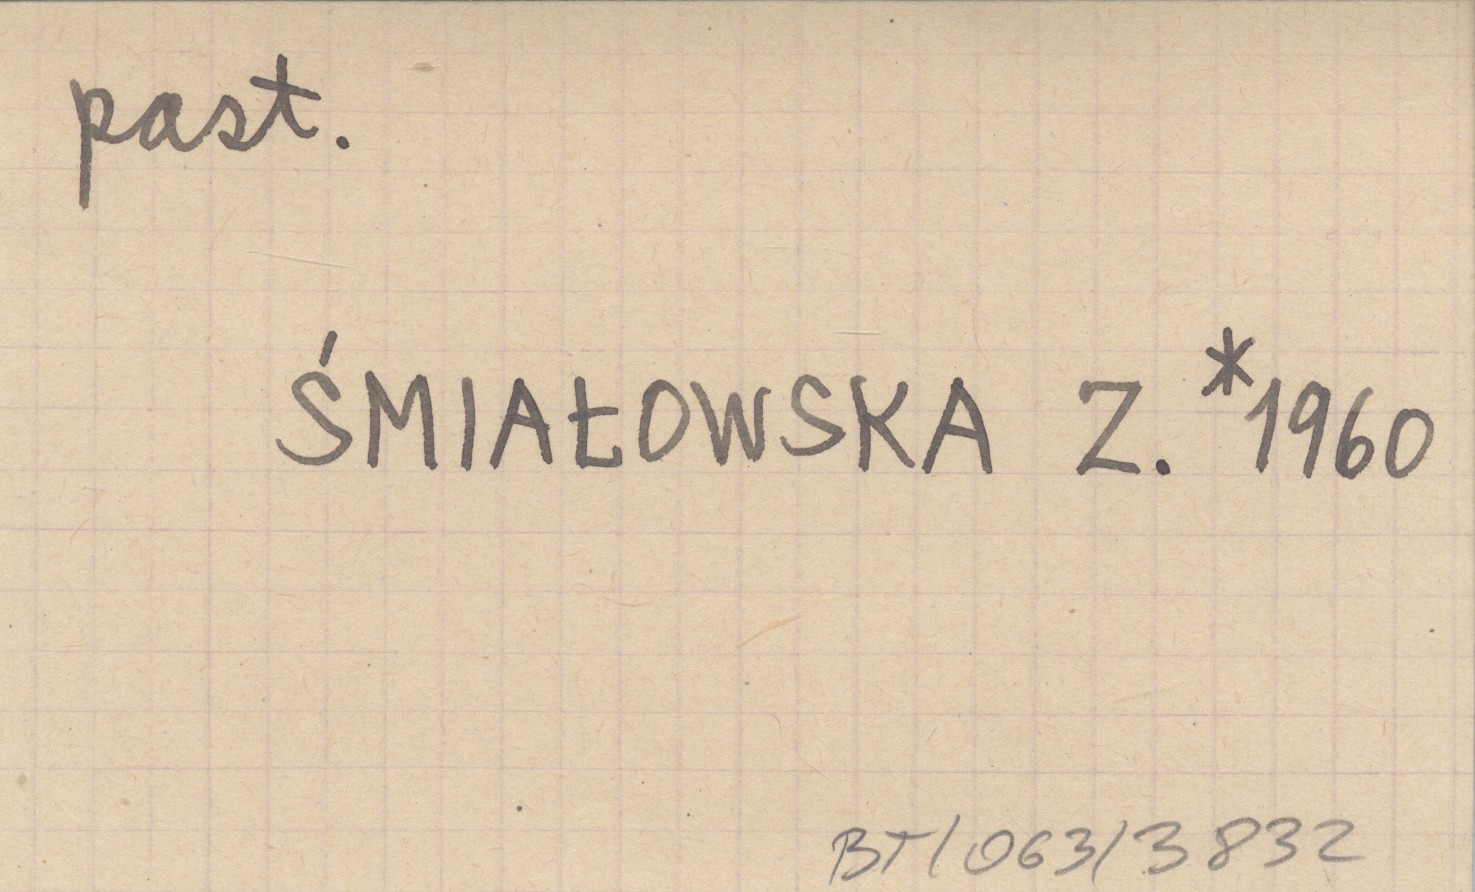 past.
ŚMIAŁOWSKA Z. *1960
BT/063/3832